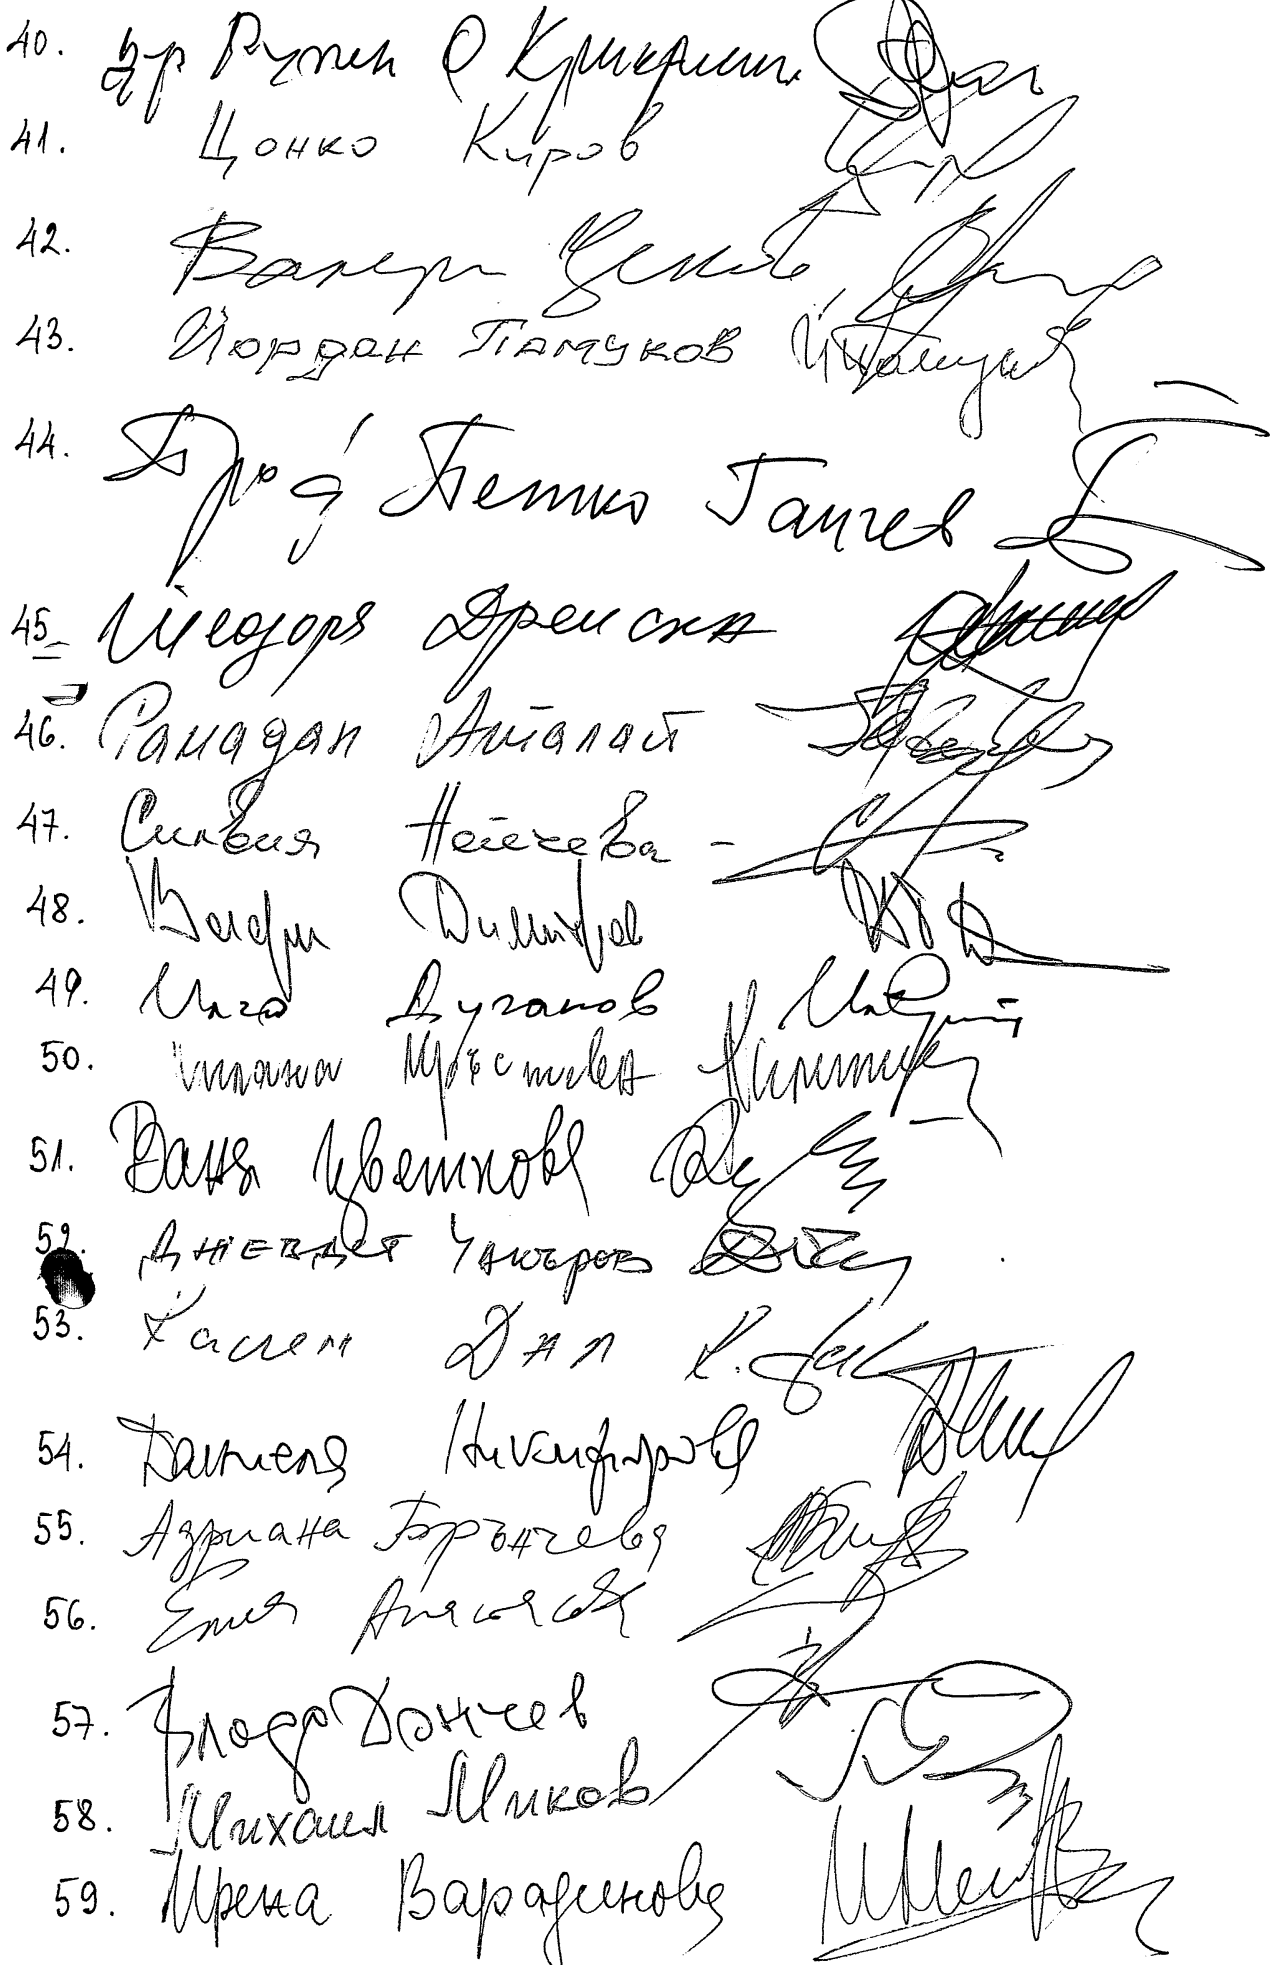 40. д-р Рупен О Крикорян
41. Цонко Киров
42. Валери Ценков
43. Йордан Памуков
44. Проф Петко Ганчев
45. Теодора Дренска
46. Рамадан Аталай
47. Силвия Нейчева
48. Валери Димитров
49. Илчо Дуганов
50. Илиана Кръстева
51. Ваня Цветкова
52. Джевдет Чакъров
53. Касим Дал
54. Даниела Никифорова
55. Адриана Брънчева
56. Емел
57. Владо Дончев
58. Михаил Миков
59. Ирена Варадинова